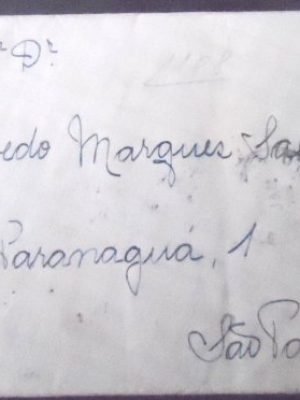 r Dr
edo Marques Sa
Paranaguá, 1
São Pa